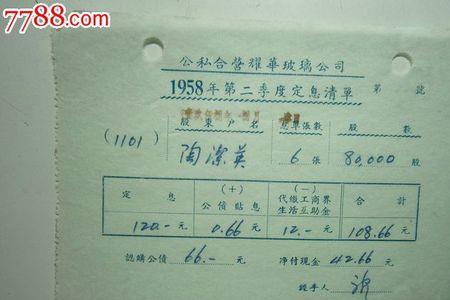 7788.com
公私合營耀華玻璃公司
1958年第二季度定息清單 第 號
股東户名 息單張數 股數
(1101) 陶潔英 6張 80,000股
定息 (+)公債貼息 (一)代繳工商界生活互助金 合計
120.-元 0.66元 12.-元 108.66元
認購公債 66.- 元 净付現金 42.66 元
經手人